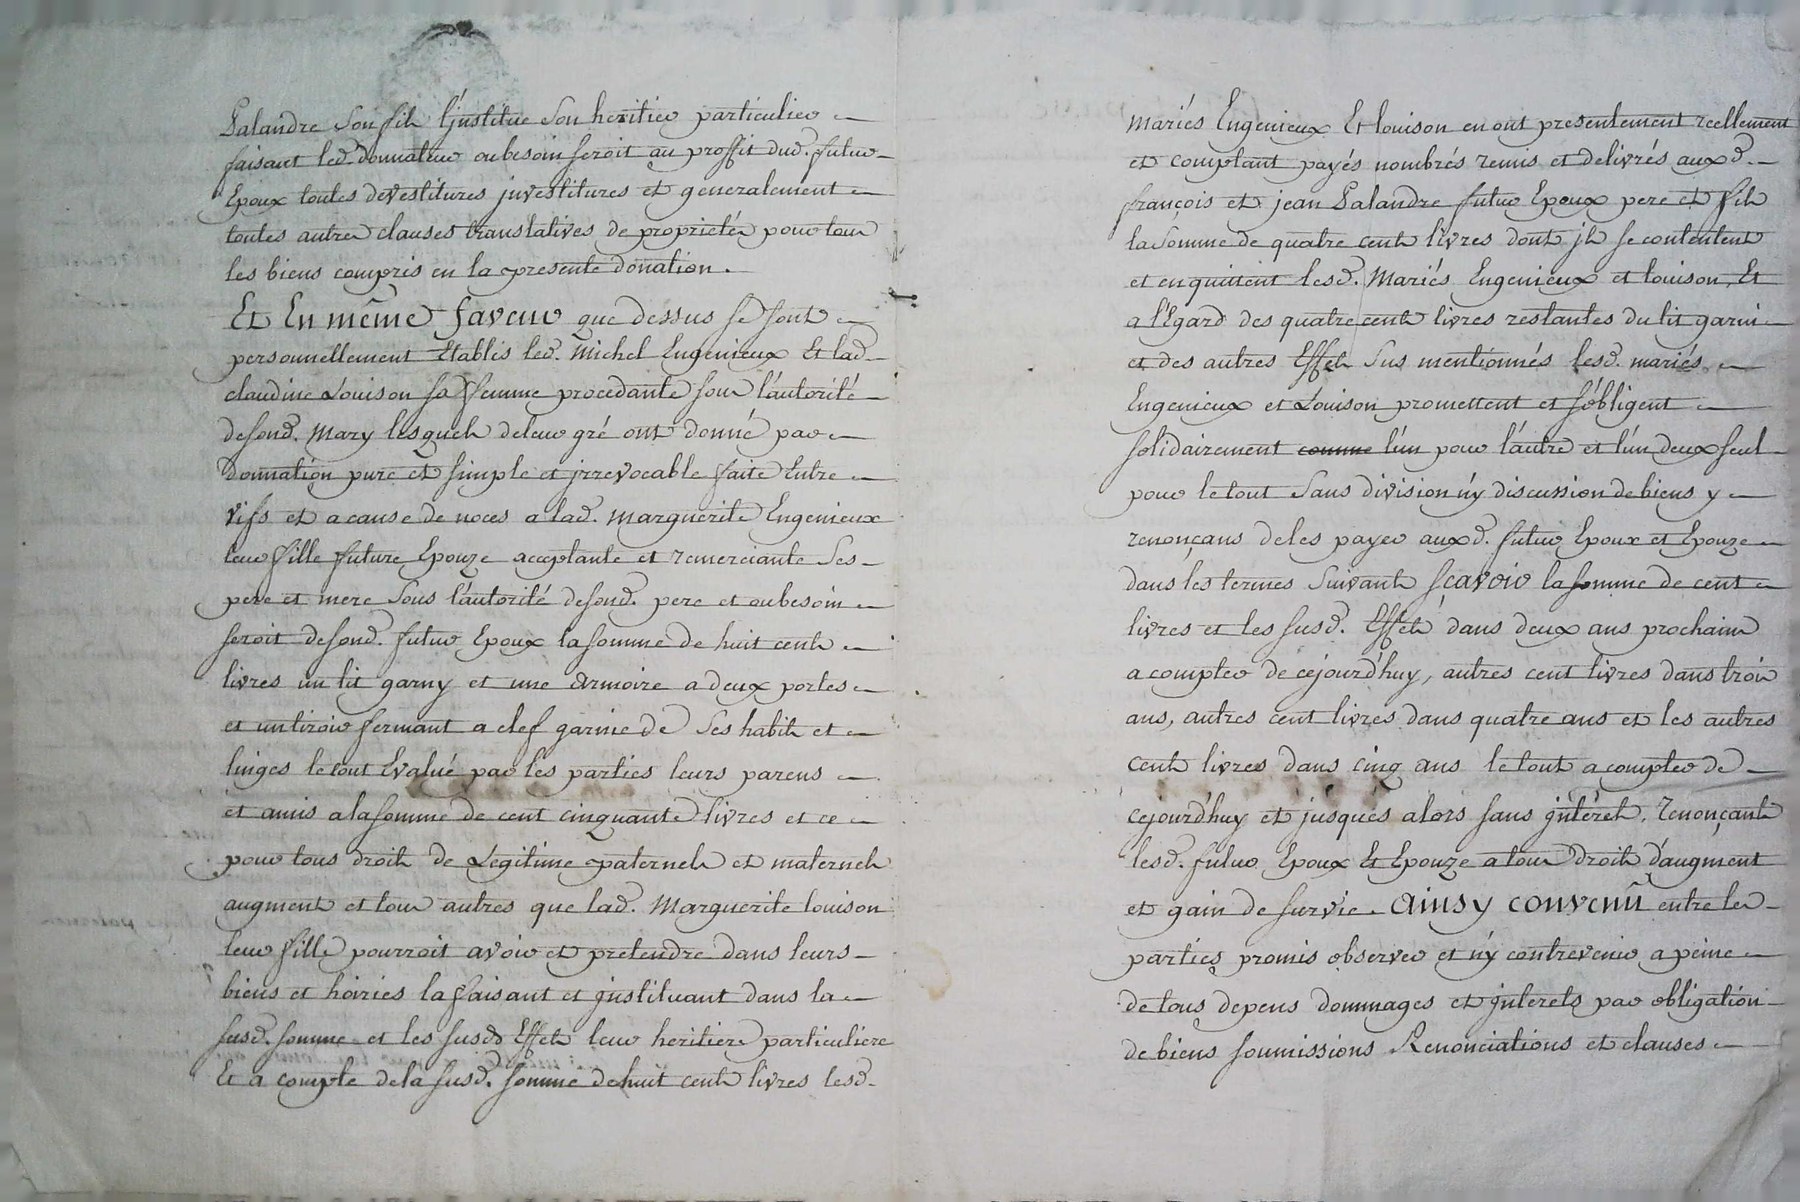 Palandre son fils l'jnstitue son heritier particulier
faisant led. donnateur oubesoin seroit au proffit dud. futur
Epoux toutes devestitures jnvestitures et generalement
toutes autres clauses translatives de proprietés pour tous
les biens compris en la presente donation.
Et En même faveur que dessus se sont
personnellement Etablis led. Michel Engenieux Et lad.
claudine Louison sa femme procedante sous l'autorité
desond. Mary lesquels deleur gré ont donné par
donnation pure et simple et jrrevocable faite Entre
vifs et a cause de noces a lad. Marguerite Engenieux
leur fille future Epouze acceptante et remerciante Ses
pere et mere Sous l'autorité desond. pere et oubesoin
seroit desond. futur Epoux la somme de huit cents
livres un lit garny et une Armoire a deux portes
et un tiroir fermant a clef garnie de Ses habits et
linges le tout Evalué par les parties leurs parens
et amis a la somme de cent cinquante livres et ce
pour tous droits de Legitime paternels et maternels
augments et tous autres que lad. Marguerite louison
leur fille pourroit avoir et pretendre dans leurs
biens et hoiries la faisant et jnstituant dans la
susd. somme et les susds Effets leur heritiere particuliere
Et a compte de la susd. somme de huit cents livres lesd.
mariés Engenieux Et louison en ont presentement reellement
et comptant payés nombrés remis et delivrés auxd.
françois et jean Palandre futur Epoux pere et fils
la somme de quatre cents livres dont jls se contentent
et en quittent lesd. Mariés Engenieux et louison, Et
a l'Egard des quatre cents livres restantes du lit garni
et des autres Effets Sus mentionnés lesd. mariés
Engenieux et Louison promettent et s'obligent
solidairement comme l'un pour l'autre et l'un deux seul
pour le tout Sans division n'y discussion de biens y
renonçans de les payer auxd. futur Epoux et Epouze
dans les termes Suivants sçavoir la somme de cent
livres et les susd. Effets dans deux ans prochains
a compter de cejourd'huy, autres cent livres dans trois
ans, autres cent livres dans quatre ans et les autres
cents livres dans cinq ans le tout a compter de
cejourd'huy et jusques alors sans jnterêts. renonçants
lesd. futur Epoux Et Epouze a tous droits d'augment
et gain de survie. Ainsy convenû entre les
parties promis observer et n'y contrevenir a peine
de tous depens dommages et jnterets par obligation
de biens soumissions Renonciations et clauses